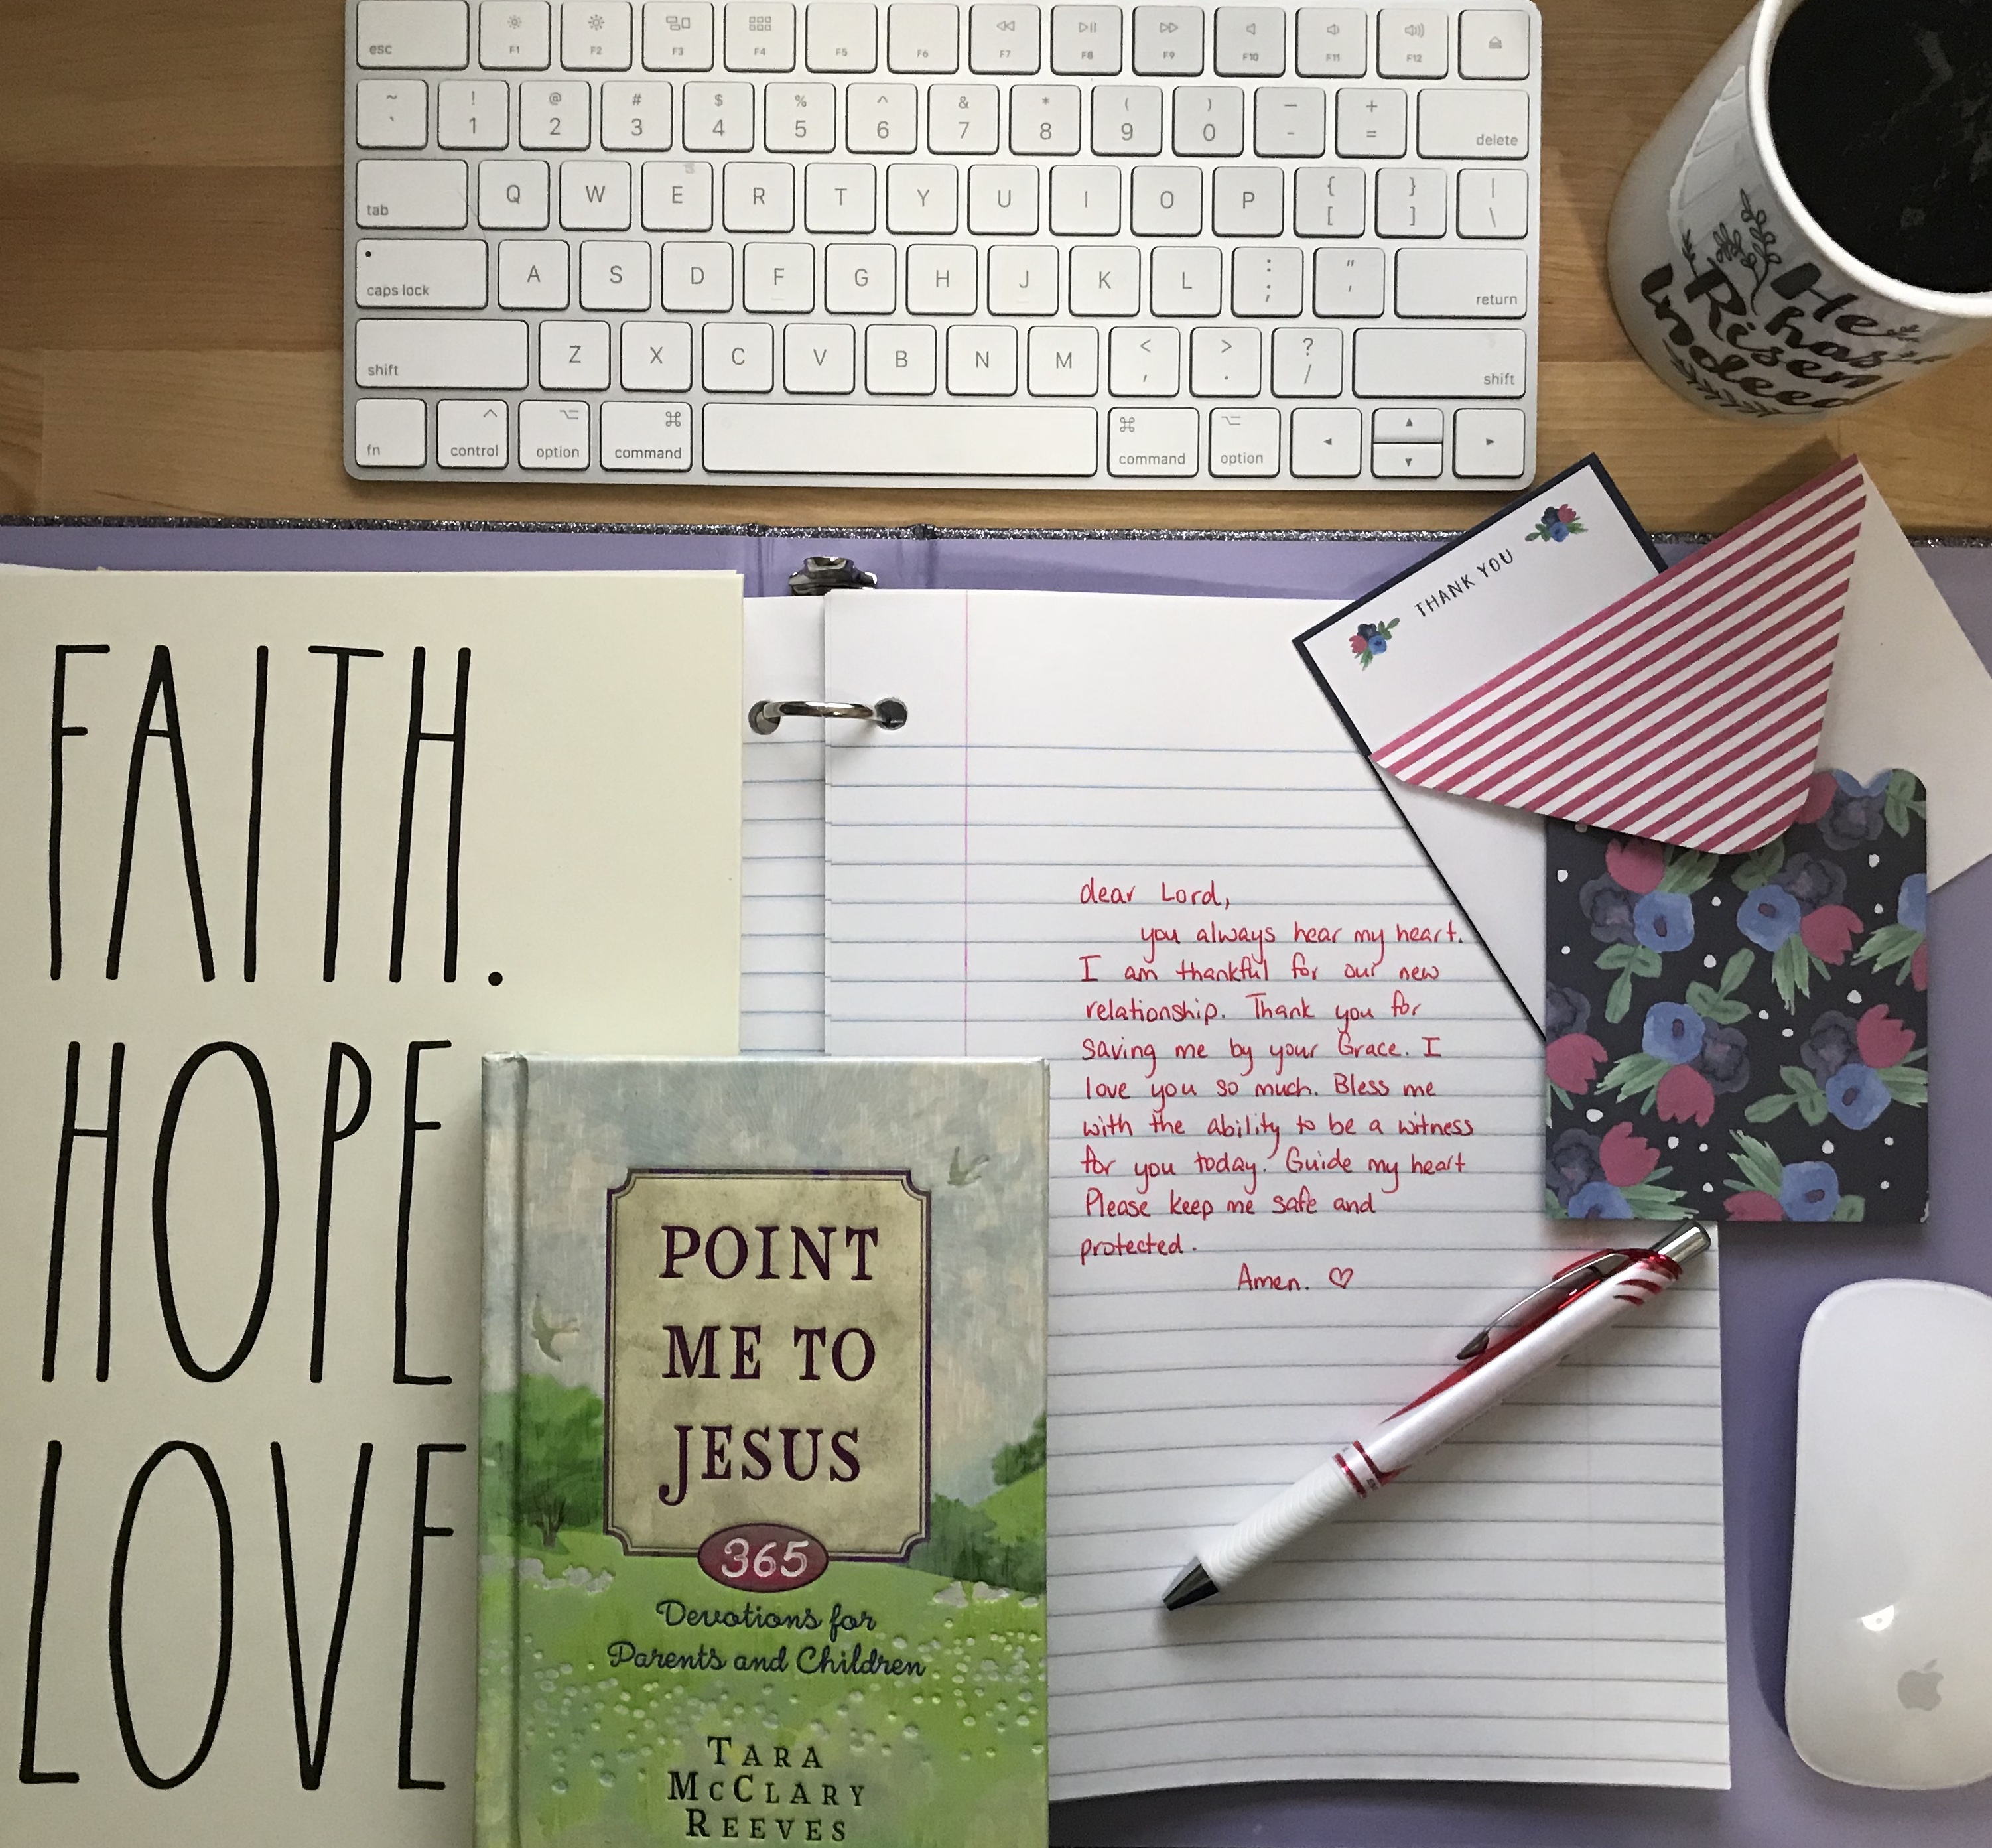 esc F1 F2 F3 F4 F5 F6 F7 F8 F9 F10 F11 F12
~ ! @ # $ % ^ & * ( ) — +
` 1 2 3 4 5 6 7 8 9 0 - = delete
tab Q W E R T Y U I O P { [ } ] | \
caps lock A S D F G H J K L : ; " ' return
shift Z X C V B N M < , > . ? / shift
fn control option command command option
He
has
Risen
Indeed
THANK YOU
FAITH.
HOPE
LOVE
dear Lord,
you always hear my heart.
I am thankful for our new
relationship. Thank you for
saving me by your Grace. I
love you so much. Bless me
with the ability to be a witness
for you today. Guide my heart
Please keep me safe and
protected.
Amen. ♡
POINT
ME TO
JESUS
365
Devotions for
Parents and Children
TARA
MCCLARY
REEVES